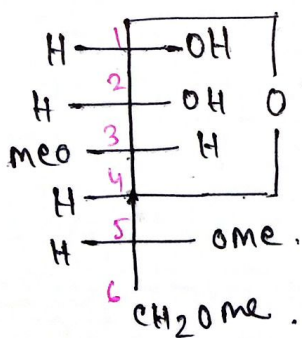 H 1 OH
2
H OH O
meo 3 H
H 4
H 5 OMe.
6
CH2OMe.